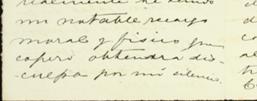 mi notable recargo
moral y fisico que
espero obtendra dis-
culpa por mi silencio.